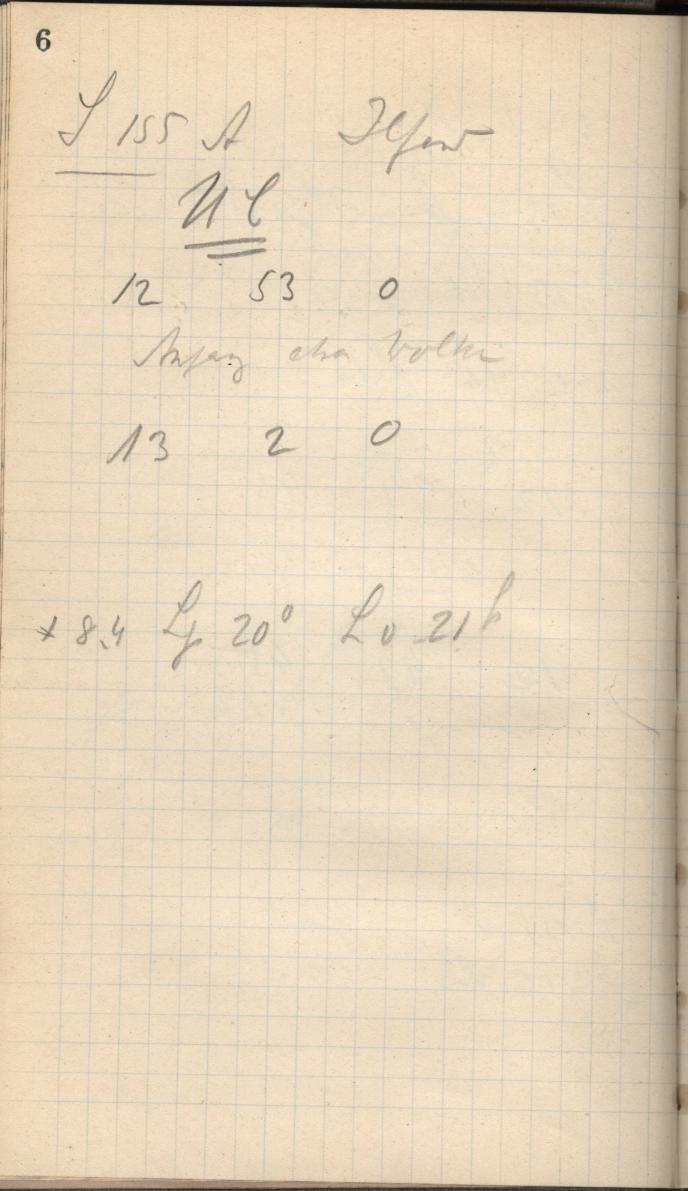 6
155 A Ilford
12 53 0
Anfang etwa Wolken
13 2 0
* 8.4 20° 21h